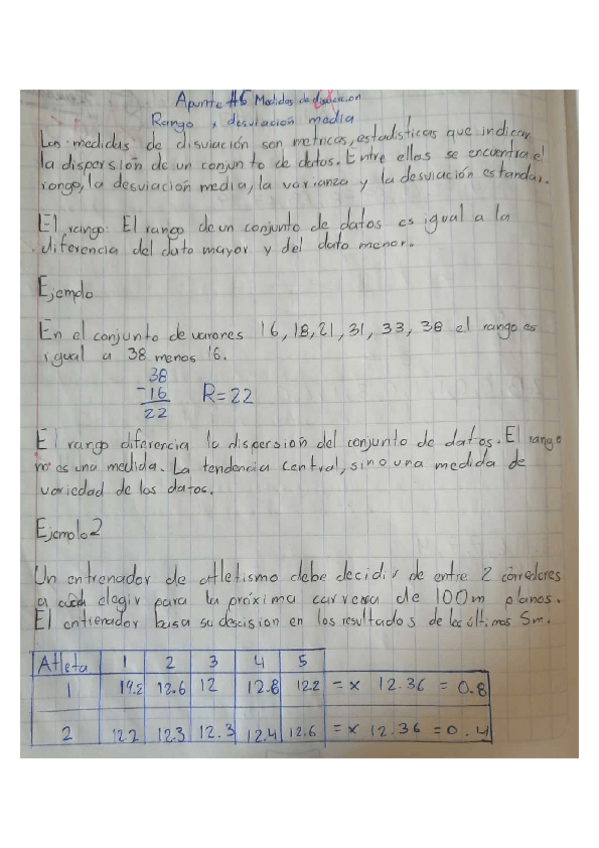 Apunte #6 Medidas de dispercion
Rango, desviación media
Las medidas de disviación son metricas, estadísticas que indican
la dispersión de un conjunto de datos. Entre ellas se encuentra el
rango, la desviación media, la varianza y la desviación estandar.
El rango: El rango de un conjunto de datos es igual a la
diferencia del dato mayor y del dato menor.
Ejemplo
En el conjunto de varores 16, 18, 21, 31, 33, 38 el rango es
igual a 38 menos 16.
38
-16 R=22
22
El rango diferencia la dispersion del conjunto de datos. El rango
no es una medida. La tendencia central, sino una medida de
variedad de los datos.
Ejemplo 2
Un entrenador de atletismo debe decidir de entre 2 corredores
a elegir para la próxima carrera de 100m planos.
El entrenador basa su descision en los resultados de los últimos 5m.
Atleta 1 2 3 4 5
1 12.2 12.6 12 12.8 12.2 = x 12.36 = 0.8
2 12.2 12.3 12.3 12.4 12.6 = x 12.36 = 0.4